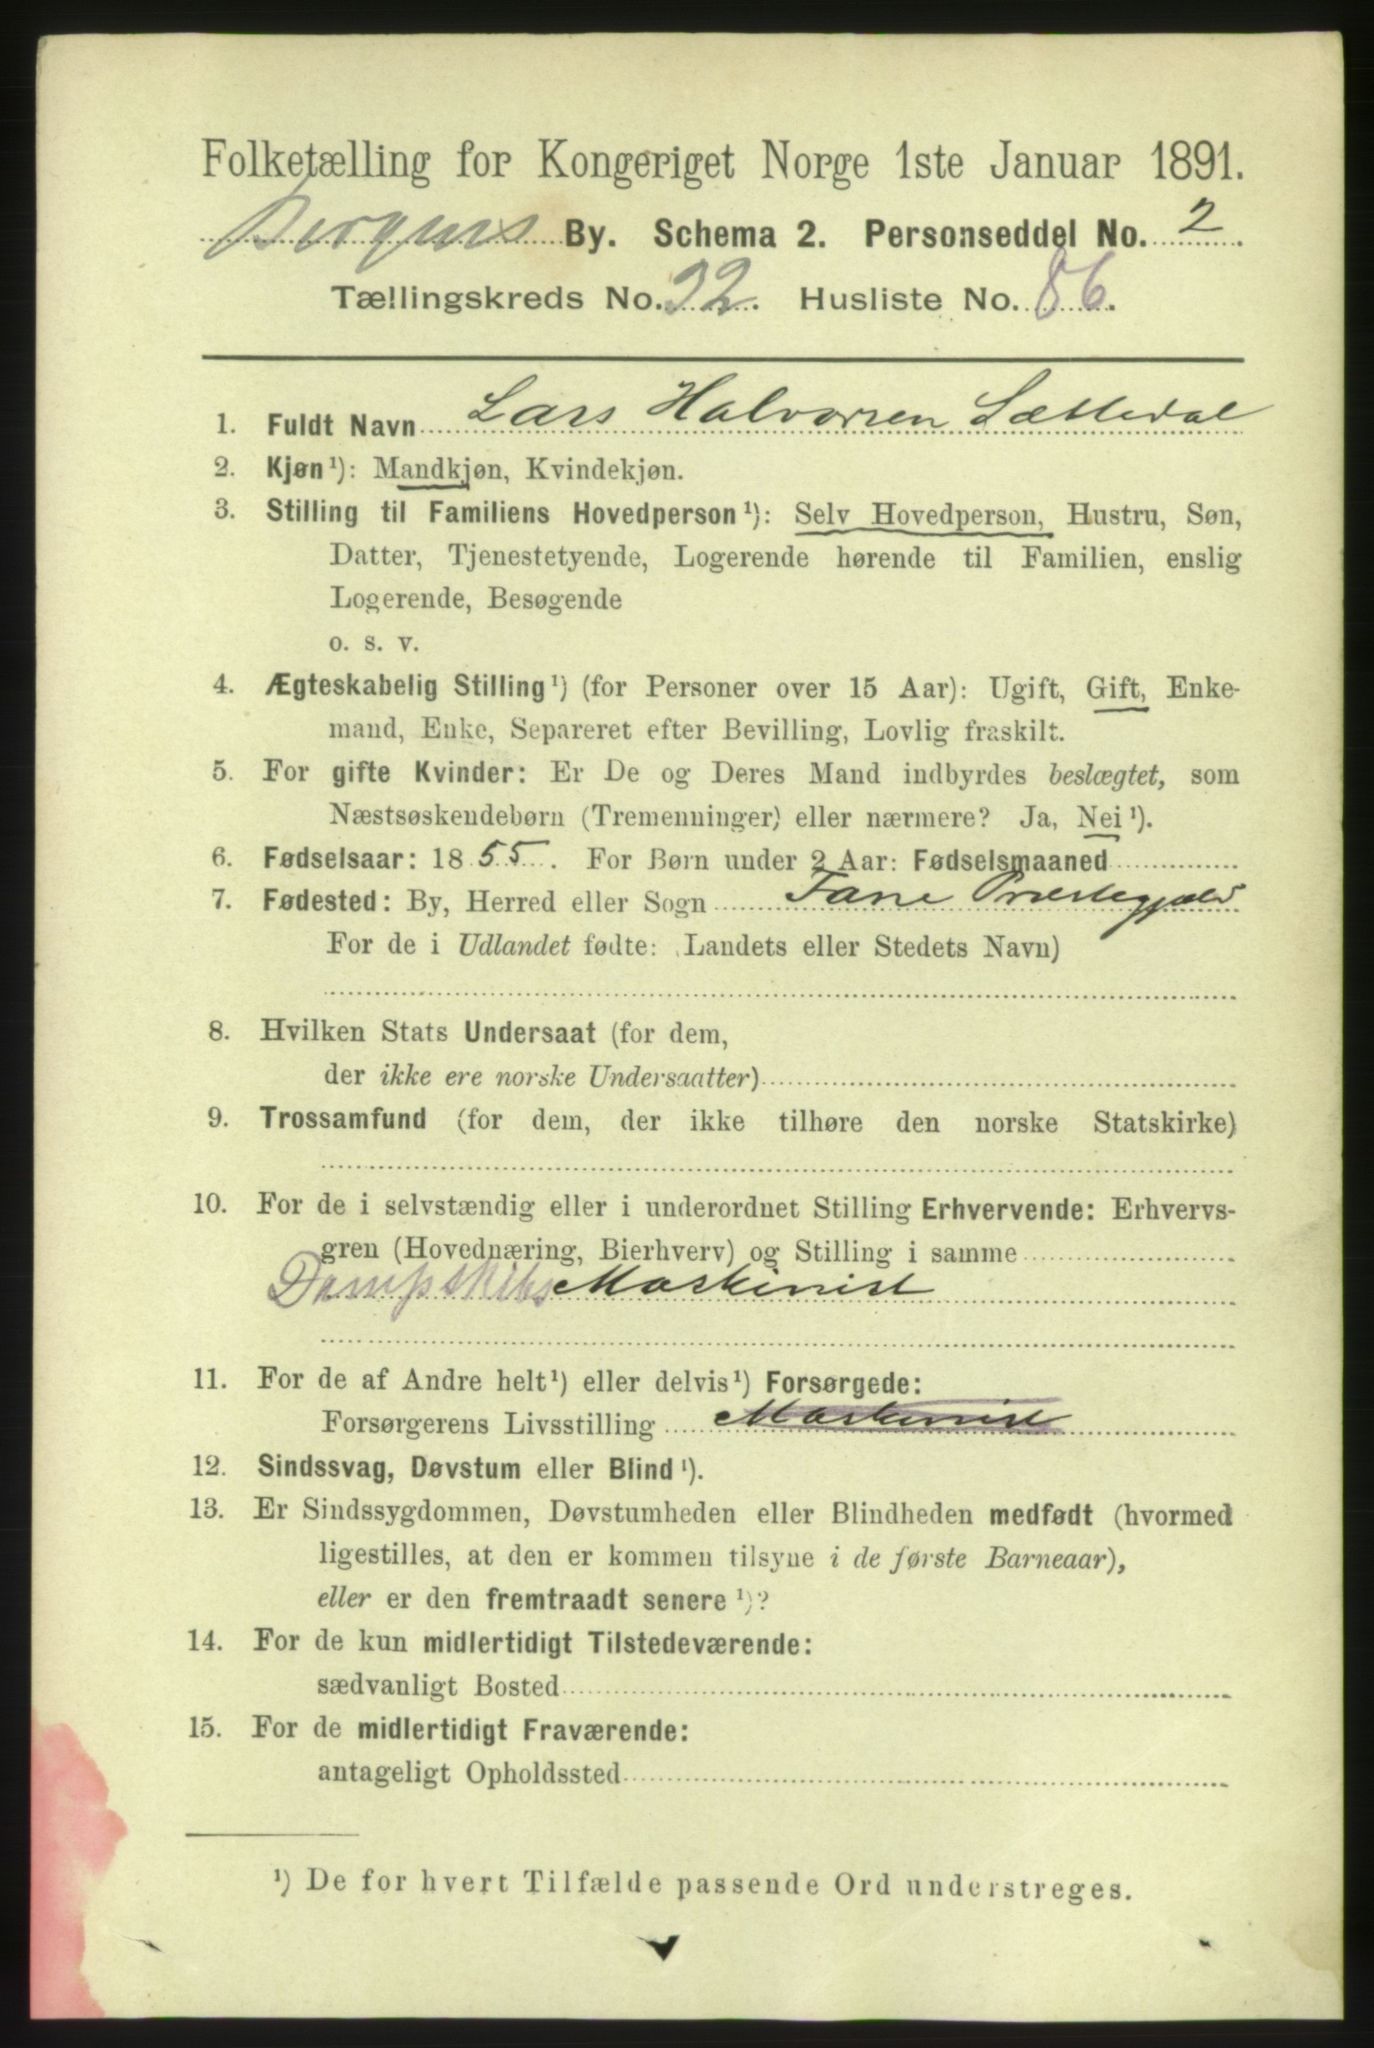 Folketælling for Kongeriget Norge 1ste Januar 1891.
Bergens By. Schema 2. Personseddel No. 2
Tællingskreds No. 32. Husliste No. 86.
1. Fuldt Navn Lars Halvorsen Sætledal
2. Kjøn¹): Mandkjøn, Kvindekjøn.
3. Stilling til Familiens Hovedperson¹): Selv Hovedperson, Hustru, Søn,
Datter, Tjenestetyende, Logerende hørende til Familien, enslig
Logerende, Besøgende
o. s. v.
4. Ægteskabelig Stilling¹) (for Personer over 15 Aar): Ugift, Gift, Enke-
mand, Enke, Separeret efter Bevilling, Lovlig fraskilt.
5. For gifte Kvinder: Er De og Deres Mand indbyrdes beslægtet, som
Næstsøskendebørn (Tremenninger) eller nærmere? Ja, Nei¹).
6. Fødselsaar: 1855. For Børn under 2 Aar: Fødselsmaaned
7. Fødested: By, Herred eller Sogn Fane Præstegjæld
For de i Udlandet fødte: Landets eller Stedets Navn)
8. Hvilken Stats Undersaat (for dem,
der ikke ere norske Undersaatter)
9. Trossamfund (for dem, der ikke tilhøre den norske Statskirke)
10. For de i selvstændig eller i underordnet Stilling Erhvervende: Erhvervs-
gren (Hovednæring, Bierhverv) og Stilling i samme
Dampskibs Maskinist
11. For de af Andre helt¹) eller delvis¹) Forsørgede:
Forsørgerens Livsstilling Maskinist
12. Sindssvag, Døvstum eller Blind¹).
13. Er Sindssygdommen, Døvstumheden eller Blindheden medfødt (hvormed
ligestilles, at den er kommen tilsyne i de første Barneaar),
eller er den fremtraadt senere¹)?
14. For de kun midlertidigt Tilstedeværende:
sædvanligt Bosted
15. For de midlertidigt Fraværende:
antageligt Opholdssted
¹) De for hvert Tilfælde passende Ord understreges.